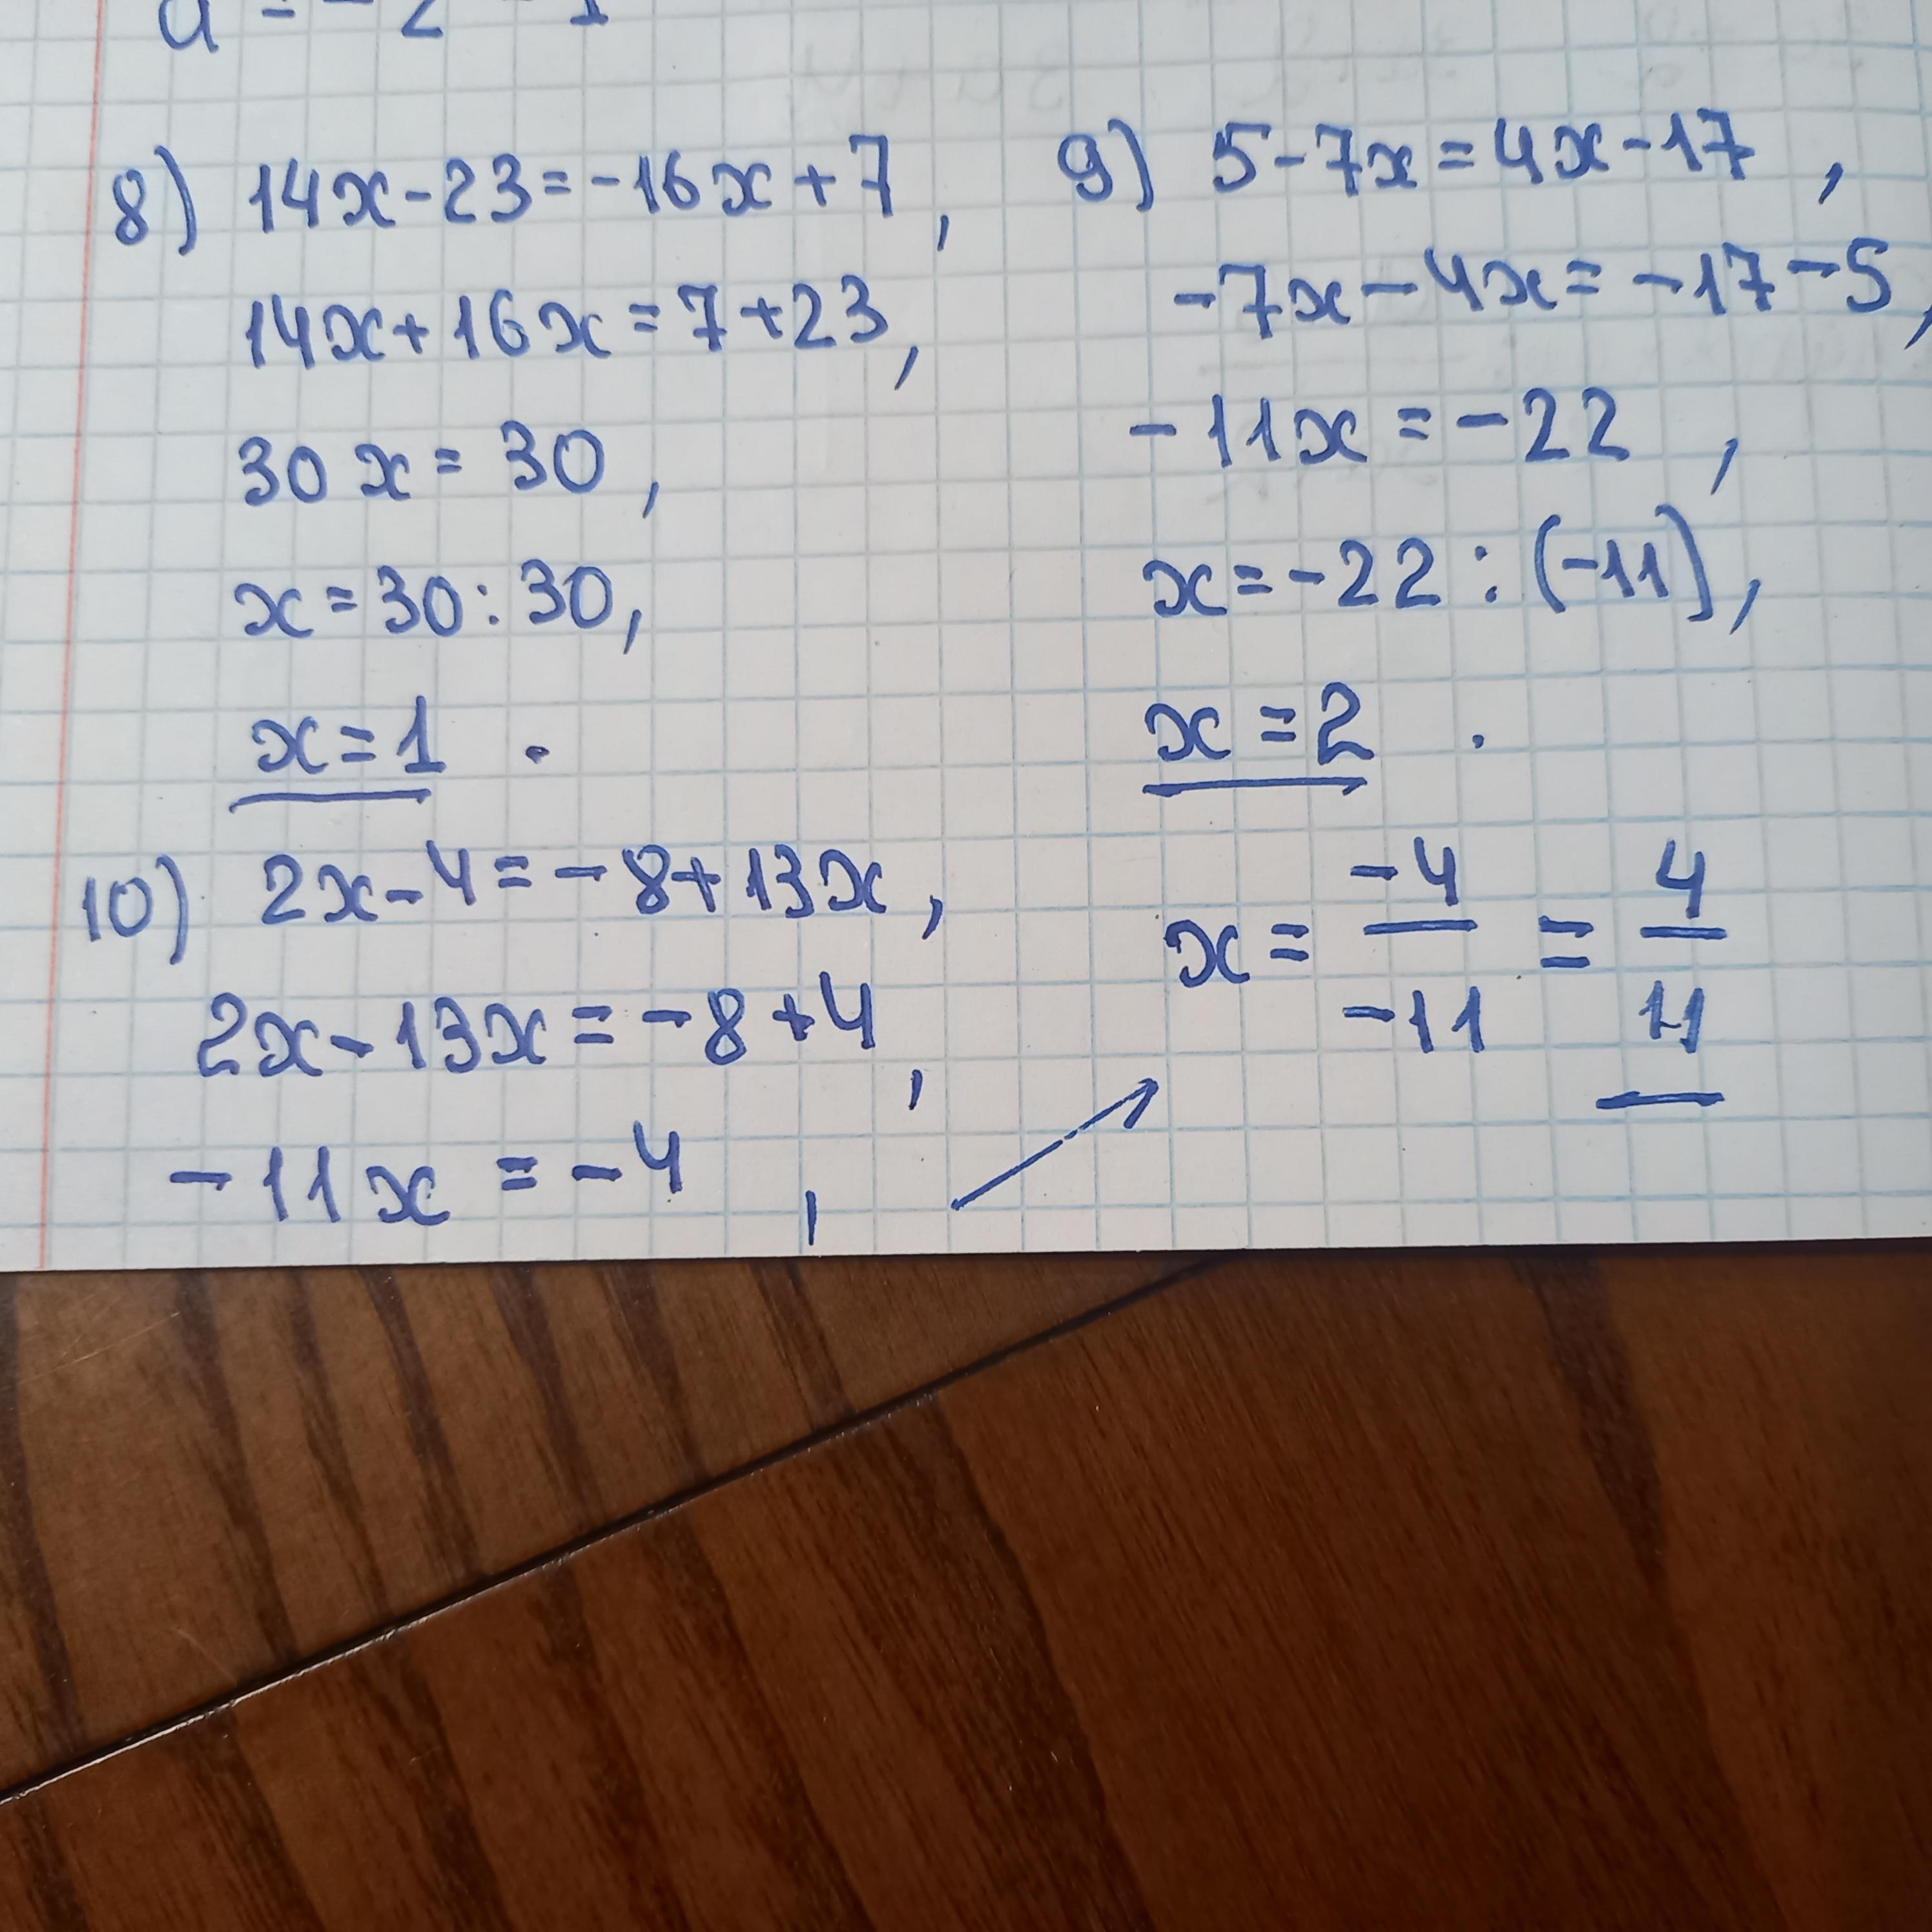 8) 14x-23=-16x+7,
14x+16x=7+23,
30x=30,
x=30:30,
x=1.
9) 5-7x=4x-17,
-7x-4x=-17-5,
-11x=-22,
x=-22:(-11),
x=2.
10) 2x-4=-8+13x,
2x-13x=-8+4,
-11x=-4,
x=-4/-11=4/11